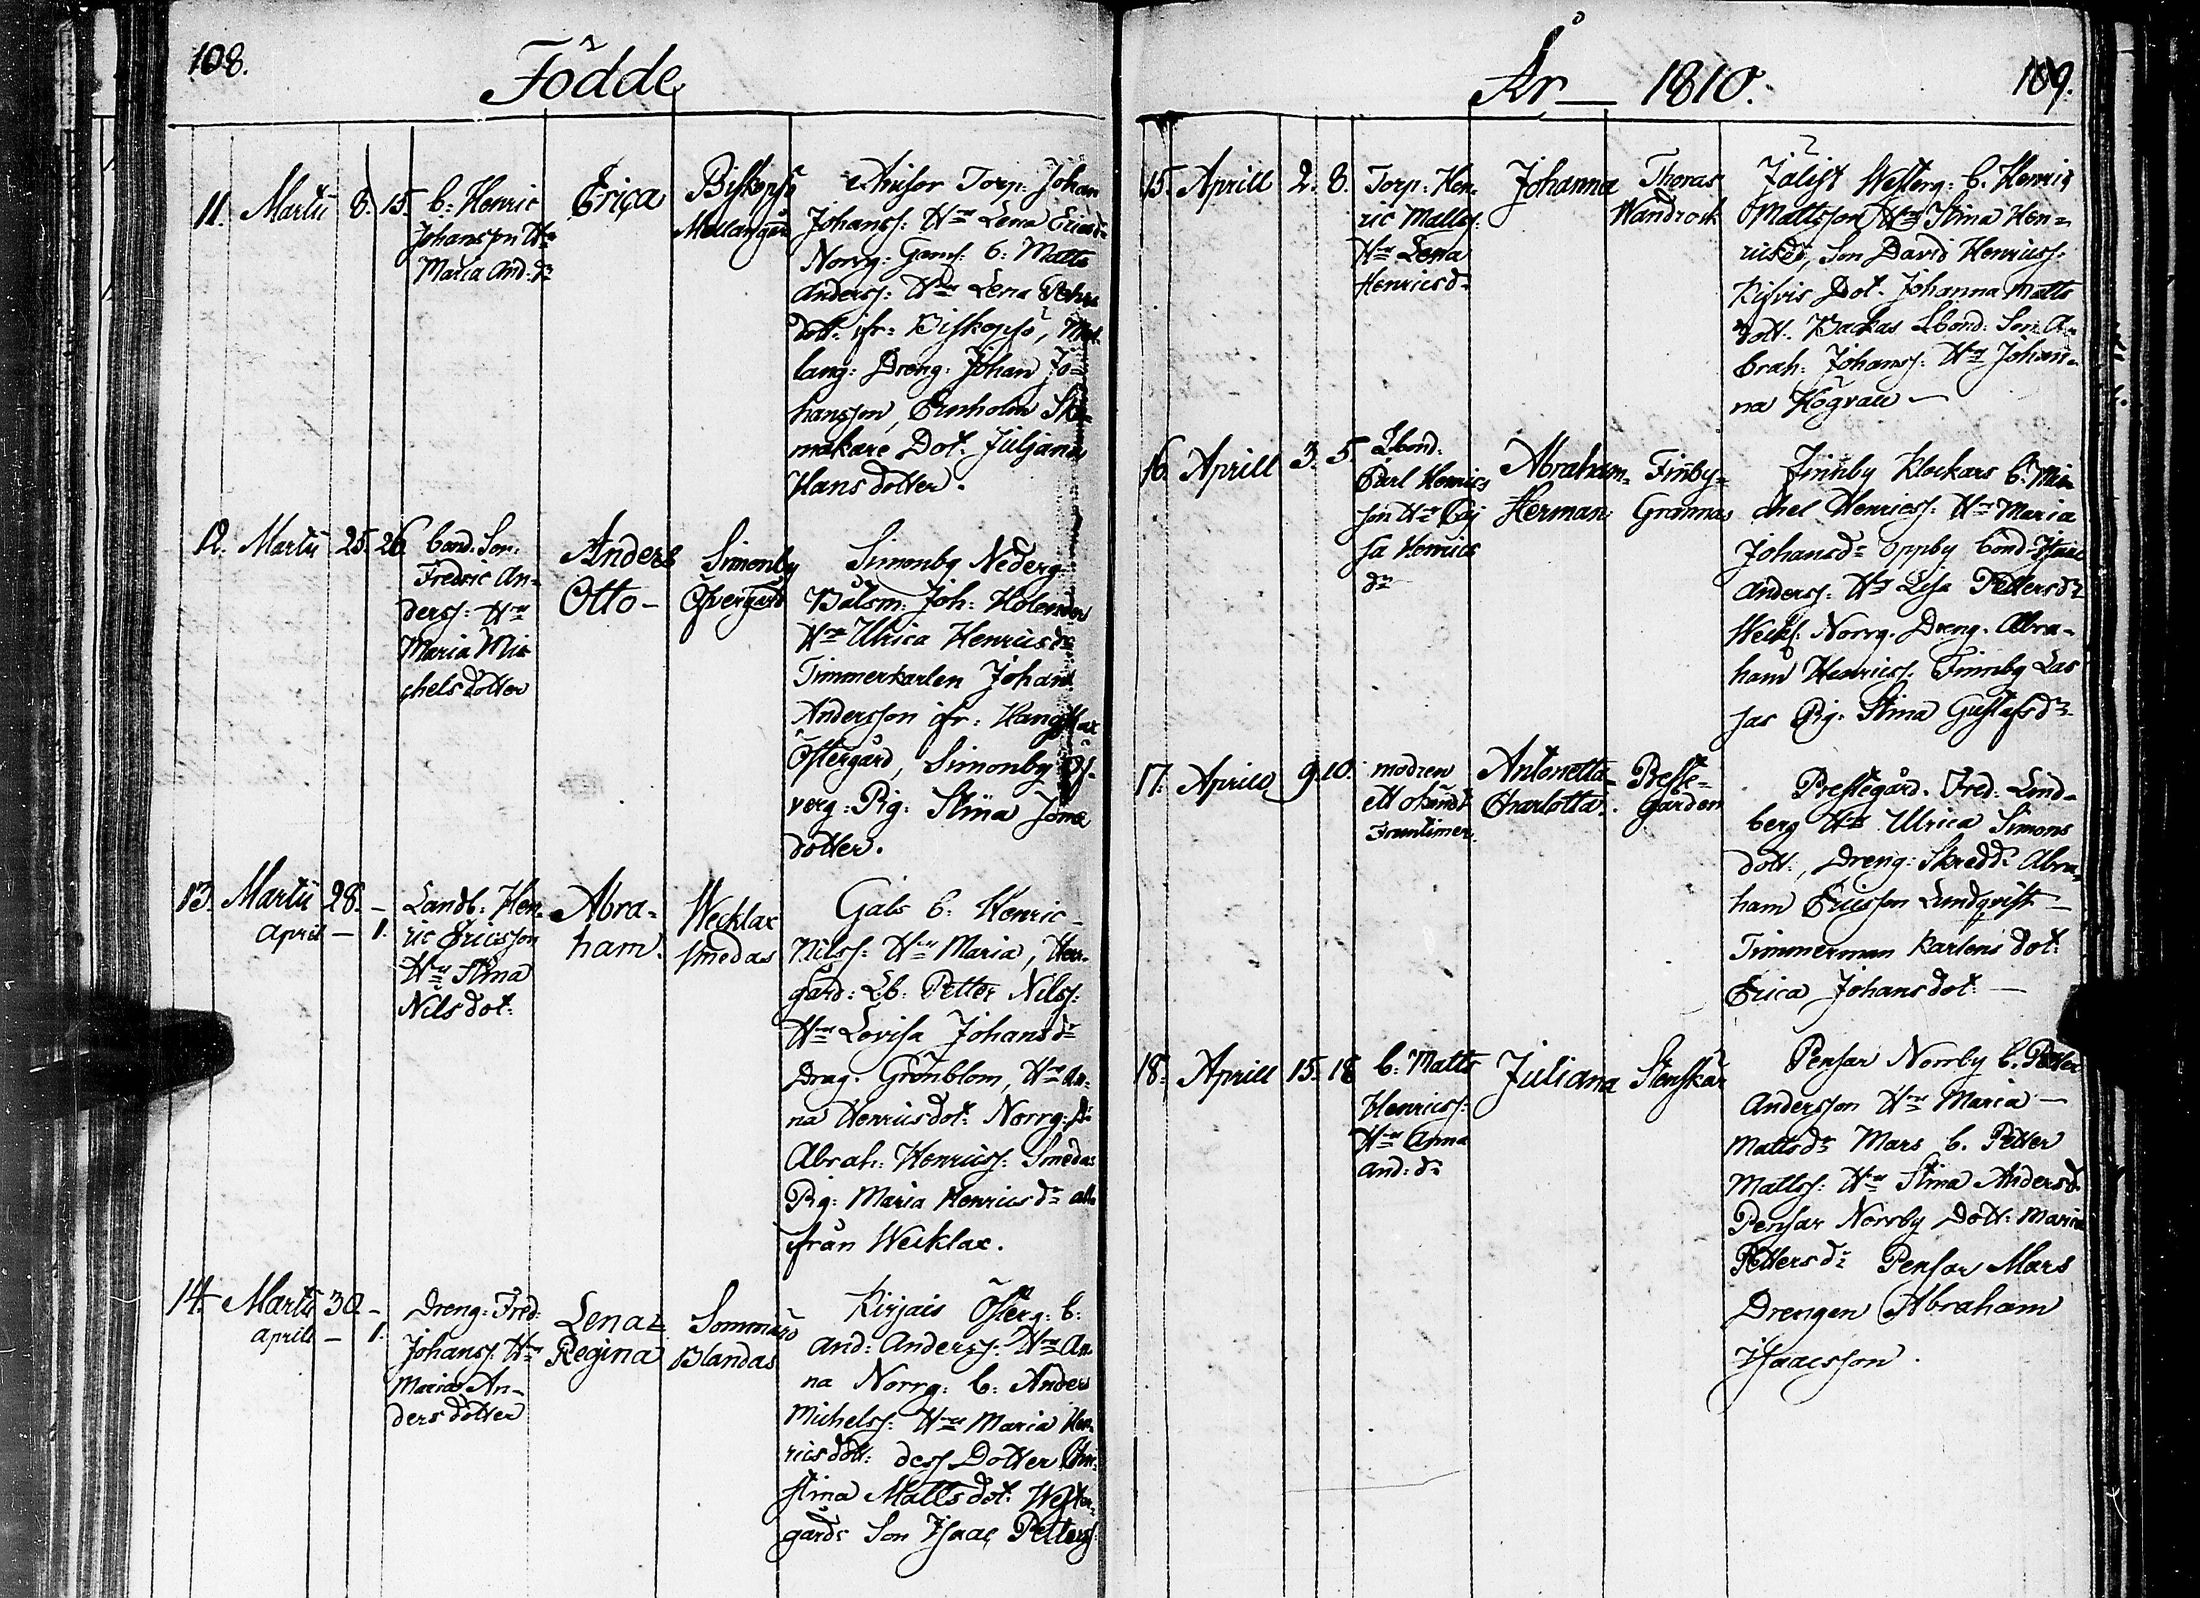 108.
Födde
11. Martii 8. 15. b: Henric Erica Biskopsö
Johansson Hu
Maria And: dr
Mellangård
Torp: Johan
Johanss: Hu Lena Ericsdr
Norrg: b: Matts
Anderss: Hu Lena
dott. ifr: Biskopsö, Mel
lang: Dreng: Johan Jo=
hansson, Ernholm Sko=
makare Dot. Juliana
Hans dotter.
12. Martii 25. 26. bond: Son.
Fredric An=
derss: Hu
Maria Mi
chels dotter
Anders
Otto
Simonby
Öfvergård
Simonby Nederg:
Båtsm: Joh: Holender
Hu Ulrica Henricsdr
Timmerkarlen Johan
Andersson ifr:
Östergård, Simonby Öf.
verg: Pig: Stina Jons
dotter.
13. Martii 28. –
April – 1.
Landb: Hen
ric Ericsson
Hu Stina
Nilsdot:
Abra=
ham.
Wecklax
Smedas
Gals b: Henric
Nilss: Hu Maria, Her.
gård: Lb: Petter Nilss:
Hu Lovisa Johansdr
Drag. Grönblom, Hu An:
na Henricsdot: Norrg: D:
Abrah: Henricss: Smedas
Pig: Maria Henricsdr alla
ifrån Wecklax.
14. Martii 30 –
April – 1.
Dreng: Fred:
Johanss. Hu
Maria An=
ders dotter
Lena=
Regina
Sommarö
Blandas
Kirjais Österg: b:
And: Anderss: Hu An
na Norrg: b: Anders
Michelss: Hu Maria Hen
ricsdott: dess Dotter Chri
stina Mattsdot: Wester.
gårds Son Isaac Petterss:
År — 1810.
109.
15. Aprill 2. 8. Torp: Hen
ric Matts:
Hu Lena
Henricsd:
Johanna
Thoras
Wandrock
Jälist Westerg: b. Henric
Mattsson Hu Stina Hen=
ricsdr, Son David Henricss:
Kisvis Dot. Johanna Matts
dott. Backas Lbond: Son A=
brah: Johanss: Hu Johan=
na Högvall —
16. Aprill 3. 5. Lbond:
Carl Henrics
son Hu Caj
sa Henrics
dr
Abraham=
Herman.
Finby=
Grannas
Finnby Klockars b: Mi=
chel Henricss: Hu Maria
Johansdr Oppby bond: Isaac
Anderss: Hu Lisa Pettersdr
Norrg. Dreng. Abra=
ham Henricss: Finnby Las
sas Pig: Stina Gustafsdr
17. Aprill 9. 10. modren
ett okändt
fruntimer
Antonetta=
Charlotta.
Preste=
gården
Prestegård. Fred: Lind=
berg Hu Ulrica Simons
dott., Dreng: Skredd: Abra=
ham Ericsson Lundqvist —
Timmerman Karlens dot:
Erica Johansdot: —
18. Aprill 15. 18 b: Matts
Henricss:
Hu Anna
And: dr
Juliana
Stenskär
Pensar Norrby b. Petter
Andersson Hu Maria —
Mattsdr Mars b. Petter
Mattss: Hu Stina Andersd:
Pensar Norrby Dott: Maria
Pettersdr Pensar Mars
Drengen Abraham
Isaacsson.